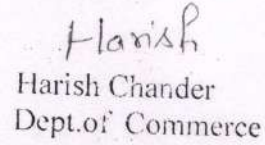 Harish
Harish Chander
Dept.of Commerce